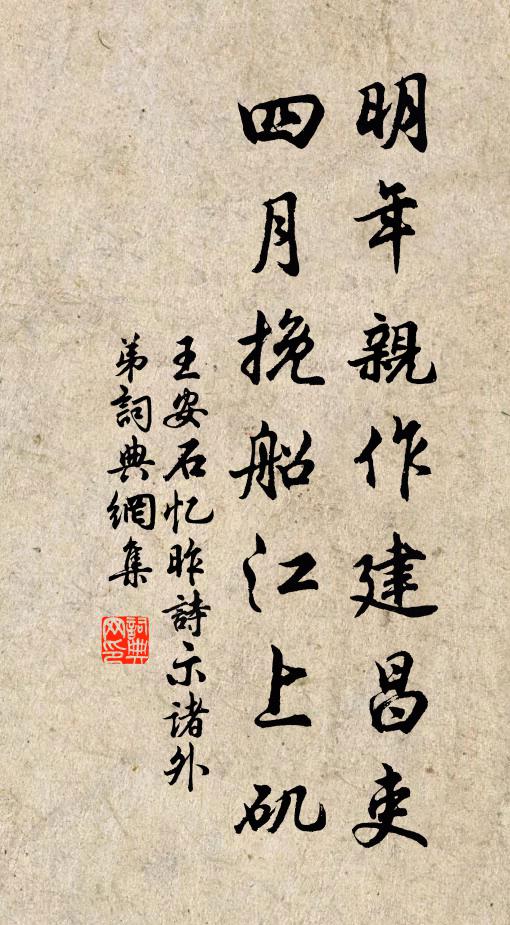 明年親作建昌吏
四月挽船江上矶
王安石忆昨詩示諸外
弟詞典網集
詞典网印